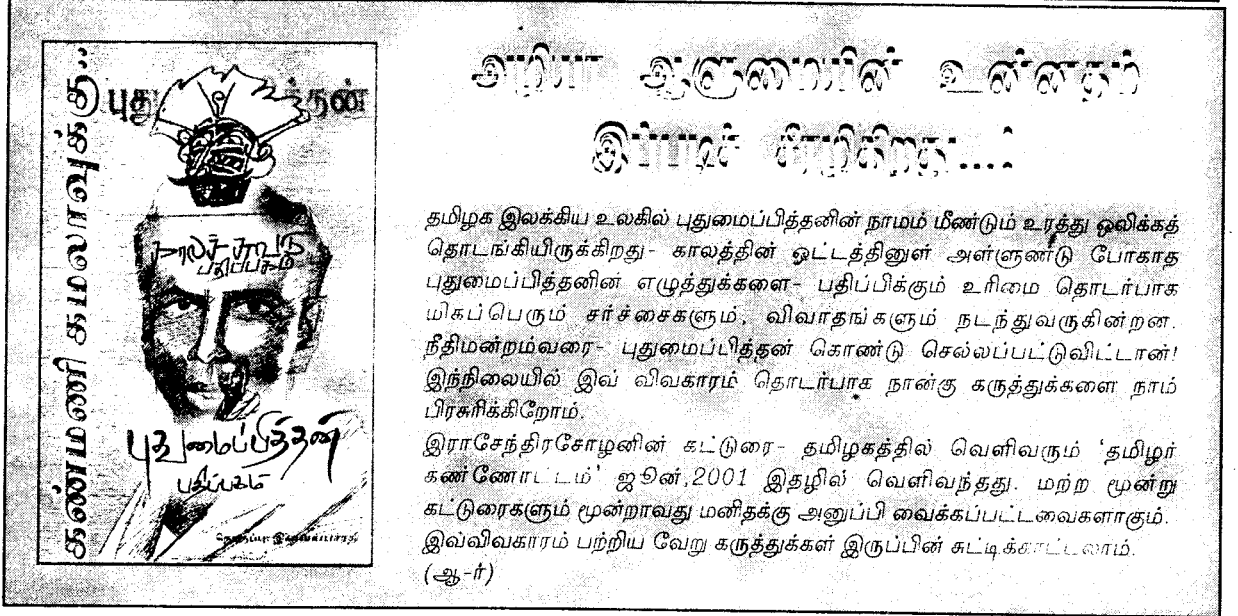 கண்மணி கமலாவுக்கு..
புது த்தன்
காலச்சுவடு
பதிப்பகம்
புதுமைப்பித்தன்
பதிப்பகம்
அறியா ஆளுமையின் உன்னதம்
இப்படிச் சீரழிகிறது....!
தமிழக இலக்கிய உலகில் புதுமைப்பித்தனின் நாமம் மீண்டும் உரத்து ஒலிக்கத்
தொடங்கியிருக்கிறது- காலத்தின் ஓட்டத்தினுள் அள்ளுண்டு போகாத
புதுமைப்பித்தனின் எழுத்துக்களை- பதிப்பிக்கும் உரிமை தொடர்பாக
மிகப்பெரும் சர்ச்சைகளும், விவாதங்களும் நடந்துவருகின்றன.
நீதிமன்றம்வரை- புதுமைப்பித்தன் கொண்டு செல்லப்பட்டுவிட்டான்!
இந்நிலையில் இவ் விவகாரம் தொடர்பாக நான்கு கருத்துக்களை நாம்
பிரசுரிக்கிறோம்.
இராசேந்திரசோழனின் கட்டுரை- தமிழகத்தில் வெளிவரும் 'தமிழர்
கண்ணோட்டம்' ஜூன்,2001 இதழில் வெளிவந்தது. மற்ற மூன்று
கட்டுரைகளும் மூன்றாவது மனிதக்கு அனுப்பி வைக்கப்பட்டவைகளாகும்.
இவ்விவகாரம் பற்றிய வேறு கருத்துக்கள் இருப்பின் சுட்டிக்காட்டலாம்.
(ஆ-ர்)